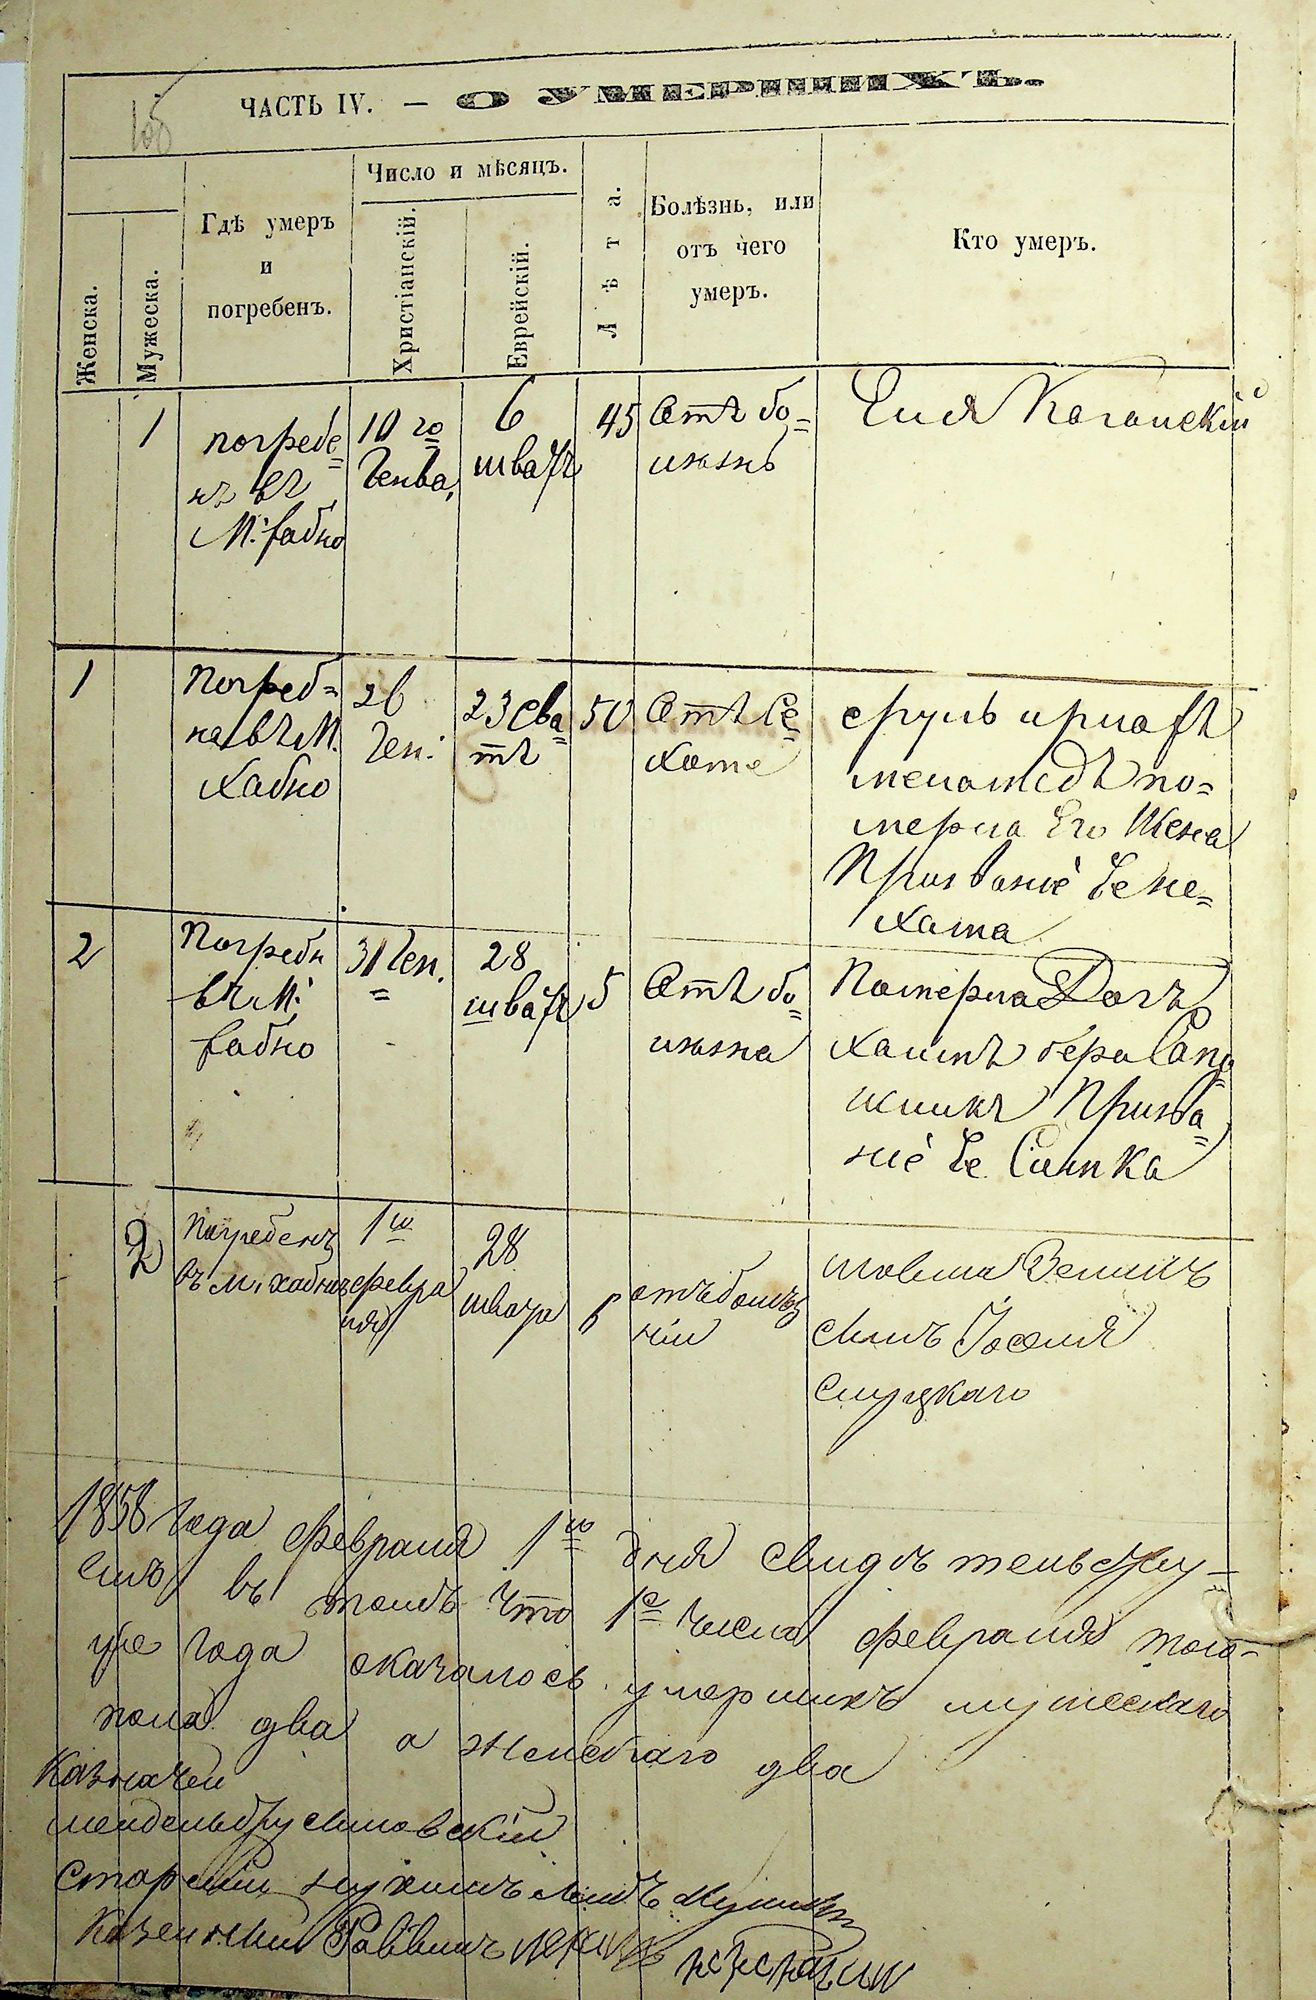 ЧАСТЬ IV. — О УМЕРШИХЪ.
Женска.
Мужеска.
Гдѣ умеръ
и
погребенъ.
Число и мѣсяцъ.
Христіанскій.
Еврейскій.
Лѣта.
Болѣзнь, или
отъ чего
умеръ.
Кто умеръ.
1
погребе=
нъ въ
М: Хабно
10 го
Генва,
6
шватъ
45
Отъ бо=
лезнь
Еля Каганскій
1
Погреб=
на въ М.
Хабно
26
Ген:
23 Сва=
тъ
50
Отъ Се=
хоте
мерла Его Жена
Призваніе Ее Не=
хама
2
Погребн
въ М:
Хабно
31 Ген.
28
шватъ
5
Отъ бо=
лезна
Померла Дочъ
Хаимъ бера Сапо=
жникъ Призва=
ніе Ее Симка
2
Погребенъ
въ м. хабнъ
1го
февра
ля
28
швата
6
отъ болѣз
ніи
сынъ Іоселя
Слуцкаго
1858 Года февраля 1го дня свидѣтельству-
емъ въ томъ что 1е числа февраля того-
же года оказалось умершихъ мужескаго
пола два а женскаго два
Казначеи
Староста
Казенный Раввинъ